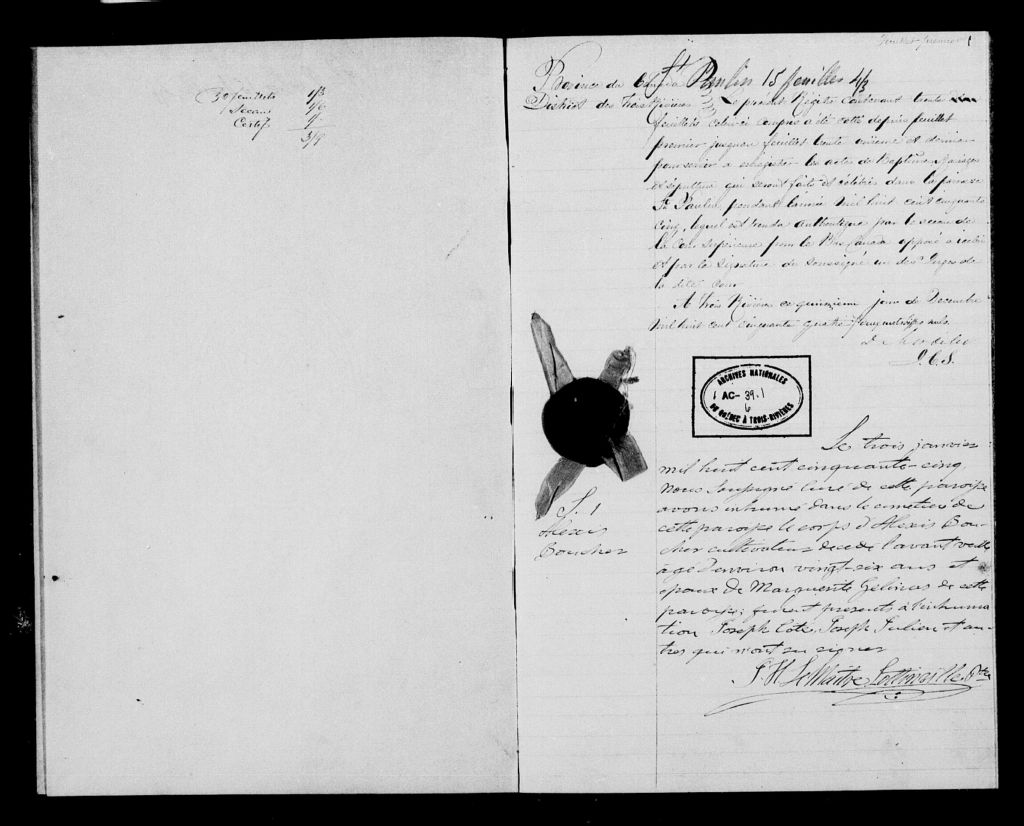 30 feuillets 1/3
1 Sceau 1/6
Certif. 1/-
3/9
feuillet premier 1
St Paulin 15 feuilles 4/3
Province du Canada
District des Trois Rivières
Le présent Régitre contenant trente
feuillets celui-ci compris a été coté depuis feuillet
premier jusquau feuillet trente et dernier
pour servir a enregistrer les actes de Baptêmes Mariages
et sépultures qui seront faits et célébrés dans la paroisse
St Paulin pendant l'année mil huit cent cinquante
cinq, lequel est rendu authentique par le sceau de
la Cour Supérieure pour le Bas Canada apposé a icelui
et par la signature du soussigné un des Juges de
la dite Cour
A Trois Rivières ce quinzieme jour de Decembre
mil huit cent cinquante quatre nuls.
J.C.S.
ARCHIVES NATIONALES
AC- 39.1
6
DU QUÉBEC À TROIS-RIVIÈRES
S. 1
Alexis
Boucher
Le trois janvier
mil huit cent cinquante-cinq,
nous soussigné curé de cette paroisse
avons inhumé dans le cimetière de
cette paroisse le corps d'Alexis Bou-
cher cultivateur décédé l'avant veille
agé d'environ vingt-six ans et
époux de Marguerite Gelinas de cette
paroisse; furent présents à l'inhuma
tion Joseph Coté, Joseph Julien et au-
tres qui n'ont su signer
S. H. LeMaitre Lottinville Ptre